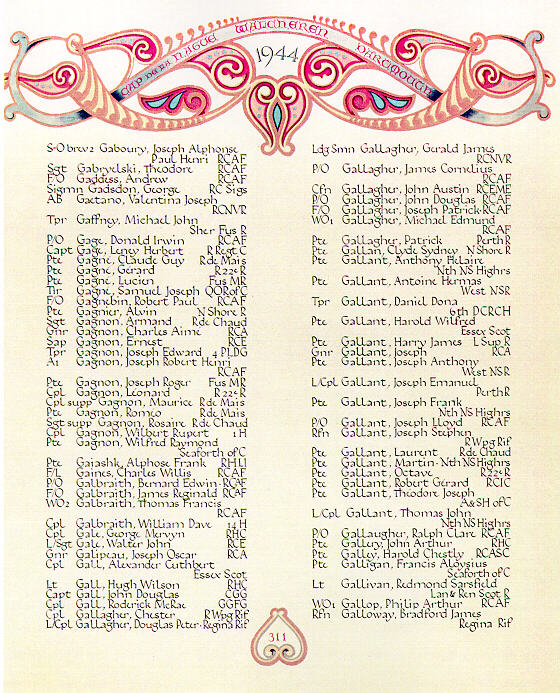 CAP DE LA HAGUE WALCHEREN DARTMOUTH
1944
S-O brev2 Gaboury, Joseph Alphonse
Paul Henri RCAF
Sgt Gabryelski, Theodore RCAF
F/O Gaddess, Andrew RCAF
Sigmn Gadsdon, George RC Sigs
AB Gaetano, Valentina Joseph
RCNVR
Tpr Gaffney, Michael John
Sher Fus R
P/O Gage, Donald Irwin RCAF
Capt Gage, Leney Herbert R Regt C
Pte Gagné, Claude Guy Rde Mais
Pte Gagné, Gérard R22eR
Pte Gagné, Lucien Fus MR
Tir Gagné, Samuel Joseph QOR of C
F/O Gagnebin, Robert Paul RCAF
Pte Gagnier, Alvin N Shore R
Sgt Gagnon, Armand Rde Chaud
Gnr Gagnon, Charles Aimé RCA
Sap Gagnon, Ernest RCE
Tpr Gagnon, Joseph Edward 4 PLDG
A1 Gagnon, Joseph Robert Henri
RCAF
Pte Gagnon, Joseph Roger Fus MR
Cpl Gagnon, Léonard R22eR
Cpl supp Gagnon, Maurice Rde Mais
Pte Gagnon, Roméo Rde Mais
Sgt supp Gagnon, Rosaire Rde Chaud
Cpl Gagnon, Wilbert Rupert 1 H
Pte Gagnon, Wilfred Raymond
Seaforth of C
Pte Gaiashk, Alphose Frank RHLI
F/L Gaines, Charles Willis RCAF
P/O Galbraith, Bernard Edwin · RCAF
F/O Galbraith, James Reginald RCAF
WO2 Galbraith, Thomas Francis
RCAF
Cpl Galbraith, William Dave 14 H
Cpl Gale, George Mervyn RHC
L/Sgt Gale, Walter John RCE
Gnr Galipeau, Joseph Oscar RCA
Cpl Gall, Alexander Cuthbert
Essex Scot
Lt Gall, Hugh Wilson RHC
Capt Gall, John Douglas CGG
Cpl Gall, Roderick McRae GGFG
Cpl Gallagher, Chester R Wpg Rif
L/Cpl Gallagher, Douglas Peter · Regina Rif
Ldg Smn Gallagher, Gerald James
RCNVR
P/O Gallagher, James Cornelius
RCAF
Cfn Gallagher, John Austin RCEME
P/O Gallagher, John Douglas RCAF
F/O Gallagher, Joseph Patrick · RCAF
WO1 Gallagher, Michael Edmund
RCAF
Pte Gallagher, Patrick Perth R
Pte Gallan, Clyde Sydney N Shore R
Pte Gallant, Anthony Hilaire
Nth NS Highrs
Pte Gallant, Antoine Hermas
West NSR
Tpr Gallant, Daniel Dona
6th DCRCH
Pte Gallant, Harold Wilfred
Essex Scot
Pte Gallant, Harry James L Sup R
Gnr Gallant, Joseph RCA
Pte Gallant, Joseph Anthony
West NSR
L/Cpl Gallant, Joseph Emanuel
Perth R
Pte Gallant, Joseph Frank
Nth NS Highrs
P/O Gallant, Joseph Lloyd RCAF
Rfn Gallant, Joseph Stephen
R Wpg Rif
Pte Gallant, Laurent Rde Chaud
Pte Gallant, Martin · Nth NS Highrs
Pte Gallant, Octave R22eR
Pte Gallant, Robert Gérard RCIC
Pte Gallant, Théodore Joseph
A & SH of C
L/Cpl Gallant, Thomas John
Nth NS Highrs
P/O Gallaugher, Ralph Clare RCAF
Pte Gallery, John Arthur RHC
Pte Galley, Harold Chestly RCASC
Pte Galligan, Francis Aloysius
Seaforth of C
Lt Gallivan, Redmond Sarsfield
Lan & Ren Scot R
WO1 Gallop, Philip Arthur RCAF
Rfn Galloway, Bradford James
Regina Rif
311